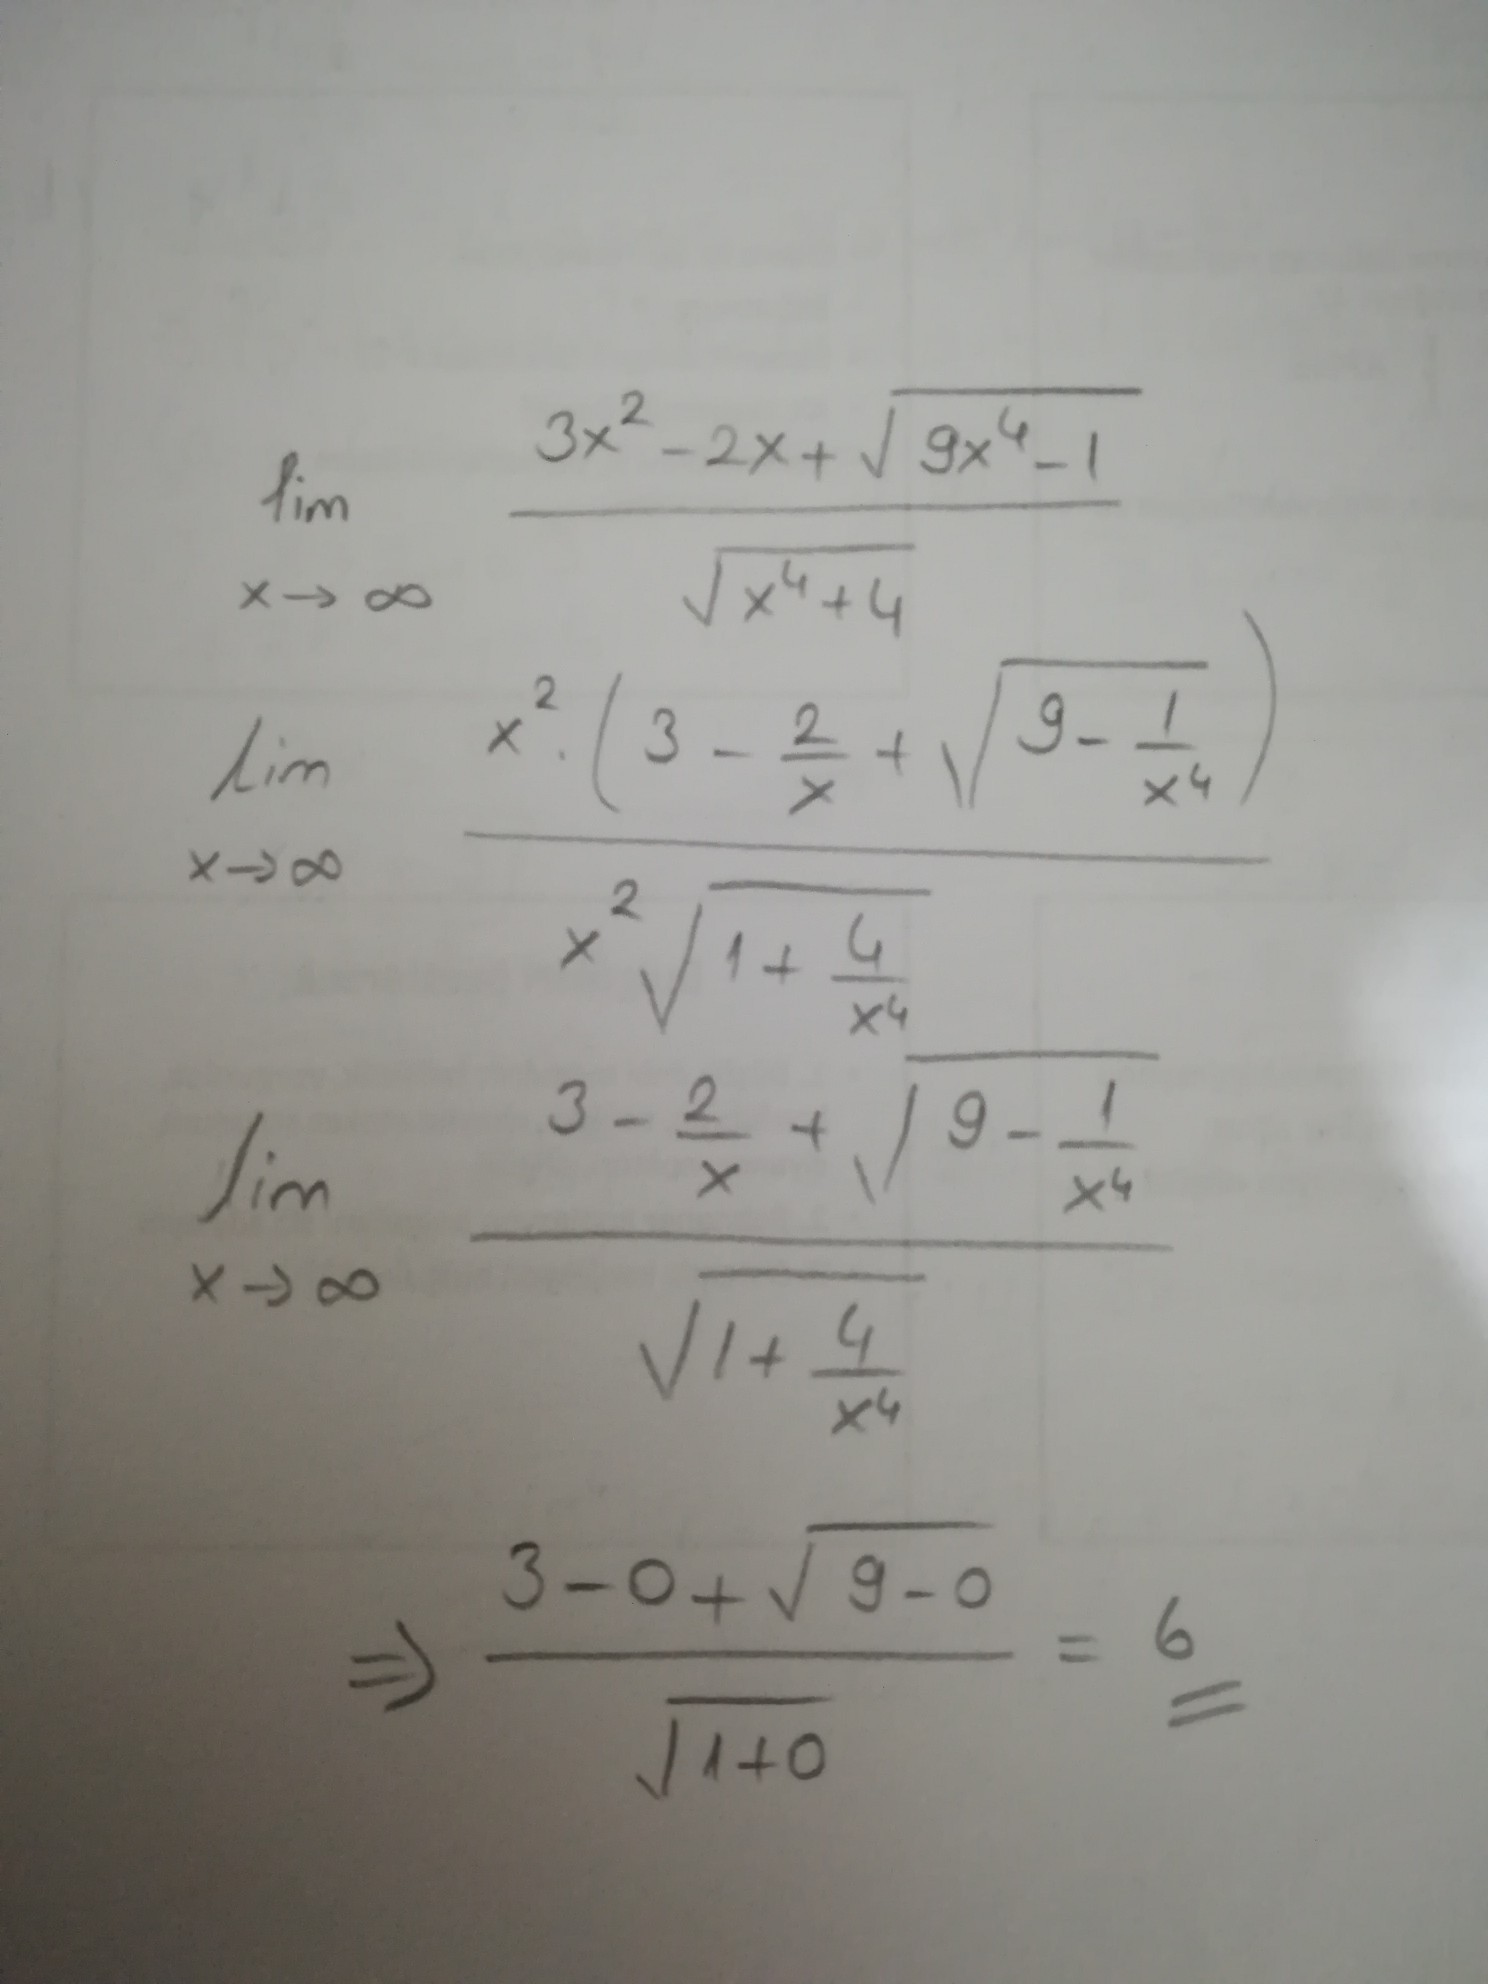 lim x→∞ (3x² - 2x + √(9x⁴ - 1)) / √(x⁴ + 4)
lim x→∞ x² . (3 - 2/x + √(9 - 1/x⁴)) / x² √(1 + 4/x⁴)
lim x→∞ (3 - 2/x + √(9 - 1/x⁴)) / √(1 + 4/x⁴)
⇒ (3 - 0 + √(9 - 0)) / √(1 + 0) = 6